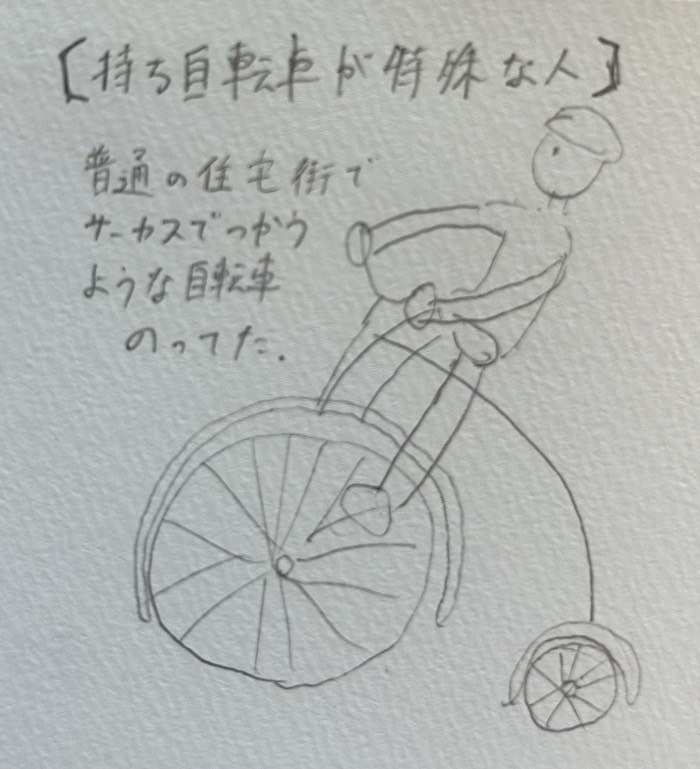 【持ち自転車が特殊な人】
普通の住宅街で
サーカスでつかう
ような自転車
のってた.